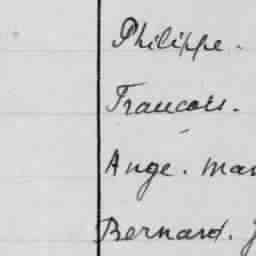 Philippe.
Francois.
Ange. Mar
Bernard. J